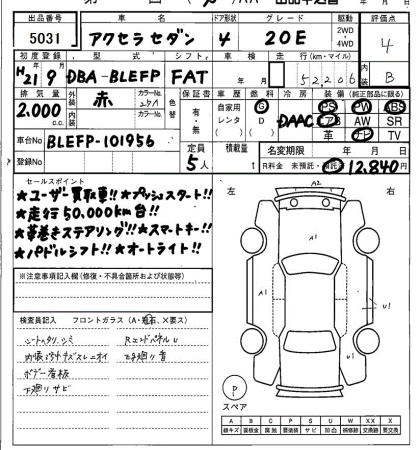 出品番号 車名 ドア形状 グレード 駆動 評価点
5031 アクセラセダン 4 20E 2WD・4WD 4
初度登録 型式 シフト 車検 走行(km・マイル) 内装
H21 9 DBA-BLEFP FAT 年 月 52,206 B
排気量 外装 カラーNo. 色替 保証書 車歴 燃料 冷房 装備(純正部品に限る)
2.000 c.c. 赤 有・無 自家用 レンタ G D AAC PS PW ABS
内装 カラーNo. エアB AW SR
革 ナビ TV
車台No BLEFP-101956
登録No
定員 5人 積載量 t 名変期限 年 月 日
R料金 未預託・預託済 12,840円
セールスポイント
★ユーザー買取車!!★プッシュスタート!!
★走行50.000km台!!
★革巻きステアリング!!★スマートキー!!
★パドルシフト!!★オートライト!!
※注意事項記入欄(修復・不具合箇所および状態等)
検査員記入 フロントガラス(A・飛石、X要ス)
シートスリ、シミ RエンドパネルU
内張 キズ ニオイ 下廻り 音
ボデー 看板
下廻りサビ
左 右
A2
A1
A1
U1
U1
P
スペア
A B C P S U W X XX X
線キズ 要板金 腐蝕 要塗装 サビ 凹 補修跡 要交換